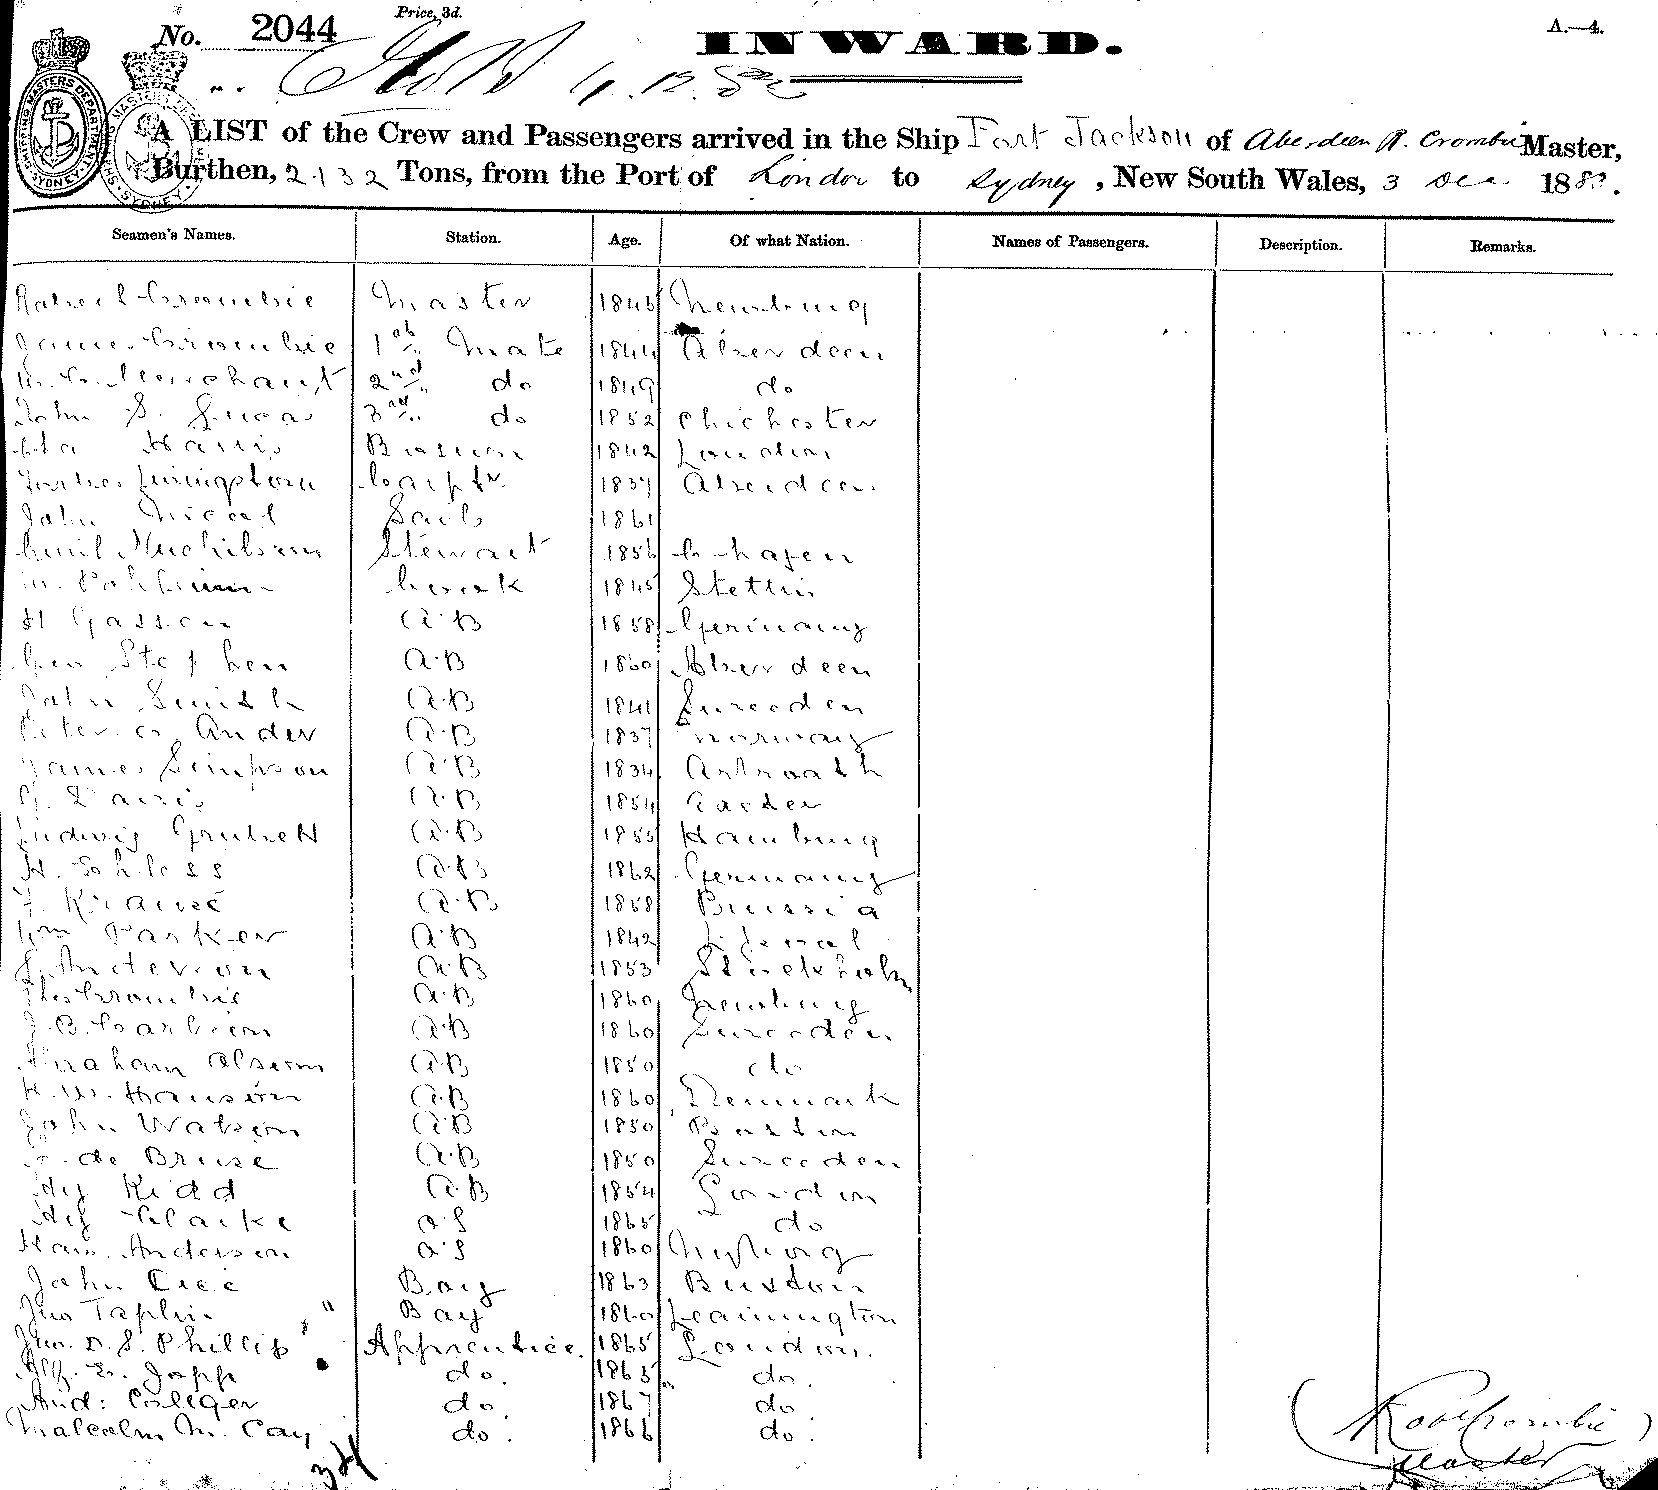 Price, 3d.
No. 2044
INWARD.
A.—4.
4.12.82
A LIST of the Crew and Passengers arrived in the Ship Port Jackson of Aberdeen R. Crombie Master,
Burthen, 2132 Tons, from the Port of London to Sydney, New South Wales, 3 Dec 1882.
Seamen's Names. Station. Age. Of what Nation. Names of Passengers. Description. Remarks.
Robert Crombie Master 1845 Newburg
James Crombie 1st Mate 1844 Aberdeen
Merchant 2nd do 1849 do
John S. Lucas 3rd do 1852 Chichester
Harris Bosun 1842 London
Livingston Carptr 1837 Aberdeen
John Nicol Sails 1861
Emil Stewart 1856 C hagen
Cook 1845 Stettin
H Gasson A.B 1858 Germany
Geo Stephen A.B 1860 Aberdeen
John Smith A.B 1841 Sweeden
Peter Ander A.B 1837 Norway
James Simpson A.B 1834 Arbroath
Davis A.B 1854
Ludwig A.B 1855 Hamburg
H. Schless A.B 1862 Germany
F. Krause A.B 1858 Prussia
Wm Parker A.B 1842
Anderson A.B 1853 Stockholm
Crombie A.B 1860 Newburg
A.B 1860 Sweeden
Abraham Olsson A.B 1850 do
Hanson A.B 1860 Denmark
John Watson A.B 1850 Boston
de Bruse A.B 1850 Sweeden
Kidd A.B 1854 London
Clarke O.S 1865 do
Hans Anderson O.S 1860
John Boy 1863 Buxton
Jno Taplin " Boy 1860 Leamington
Jno. D. S. Phillip Apprentice. 1865 London.
Alf. E. Japp do. 1863 do.
And: Colleger do. 1867 do.
Malcolm M. Cay do. 1866 do.
Robt Crombie
Master